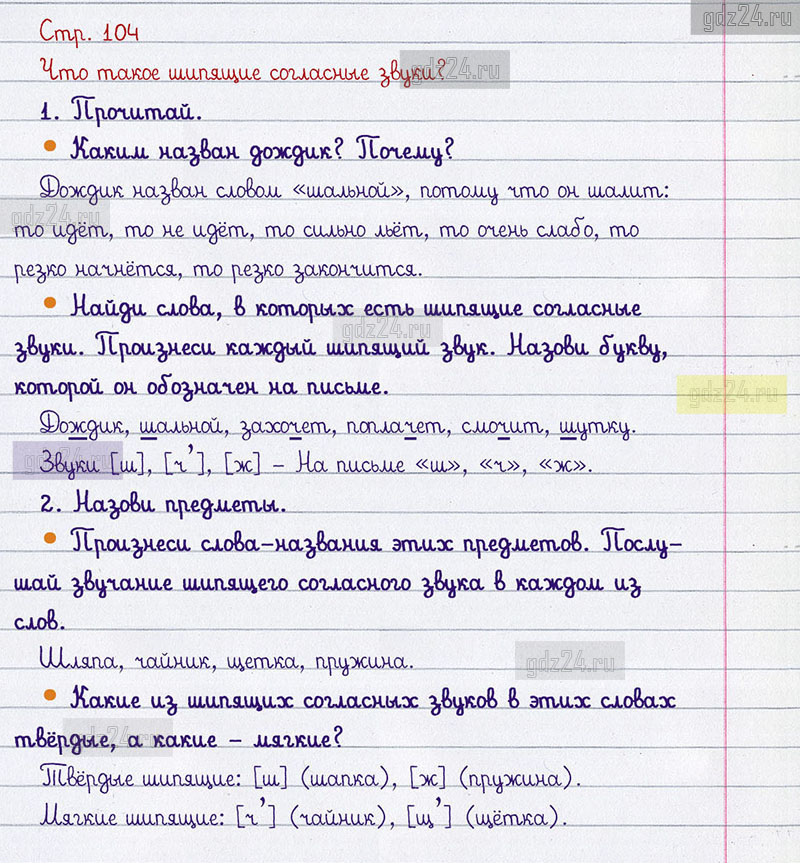 gdz24.ru
Стр. 104
Что такое шипящие согласные звуки?
gdz24.ru
1. Прочитай.
• Каким назван дождик? Почему?
gdz24.ru
Дождик назван словом «шальной», потому что он шалит:
gdz24.ru
то идёт, то не идёт, то сильно льёт, то очень слабо, то
резко начнётся, то резко закончится.
• Найди слова, в которых есть шипящие согласные
gdz24.ru
звуки. Произнеси каждый шипящий звук. Назови букву,
которой он обозначен на письме.
gdz24.ru
Дождик, шальной, захочет, поплачет, смочит, шутку.
Звуки [ш], [ч’], [ж] – На письме «ш», «ч», «ж».
gdz24.ru
2. Назови предметы.
• Произнеси слова-названия этих предметов. Послу-
шай звучание шипящего согласного звука в каждом из
слов.
Шляпа, чайник, щетка, пружина.
gdz24.ru
• Какие из шипящих согласных звуков в этих словах
твёрдые, а какие – мягкие?
gdz24.ru
Твёрдые шипящие: [ш] (шапка), [ж] (пружина).
Мягкие шипящие: [ч’] (чайник), [щ’] (щётка).